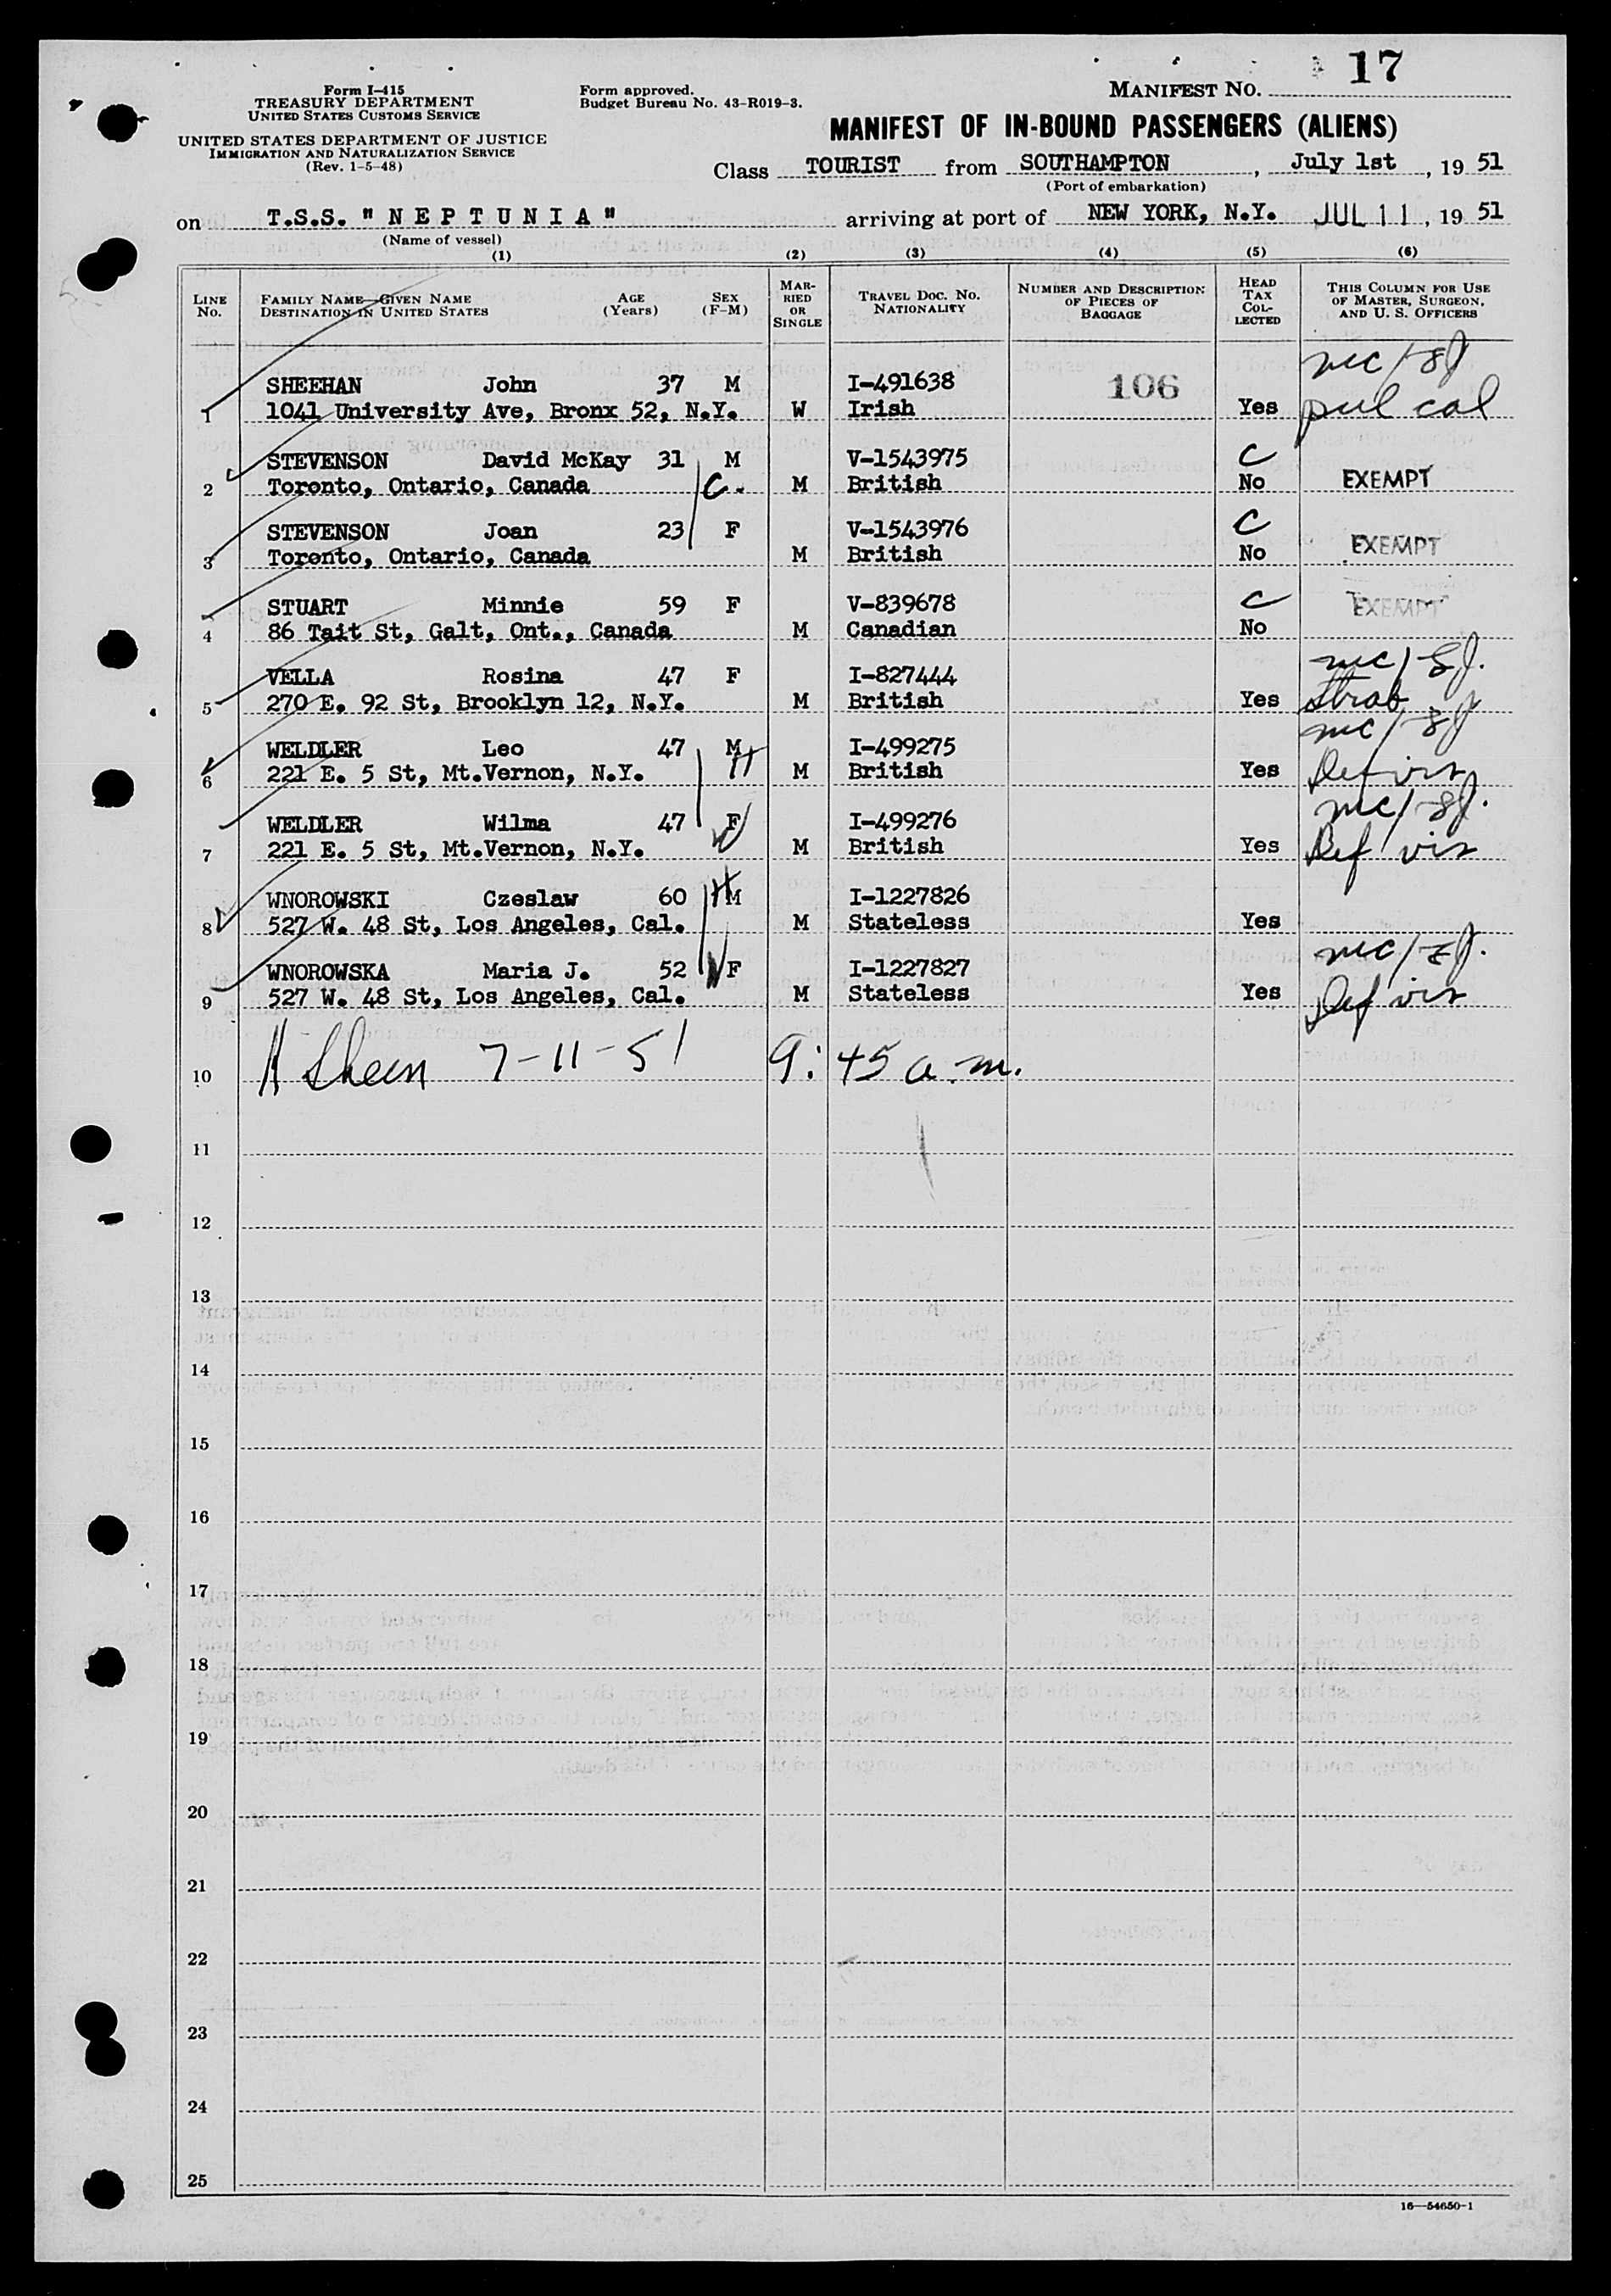 17
Form I-415
TREASURY DEPARTMENT
UNITED STATES CUSTOMS SERVICE
UNITED STATES DEPARTMENT OF JUSTICE
IMMIGRATION AND NATURALIZATION SERVICE
(Rev. 1-5-48)
Form approved.
Budget Bureau No. 43-R019-3.
MANIFEST NO.
MANIFEST OF IN-BOUND PASSENGERS (ALIENS)
Class TOURIST from SOUTHAMPTON, July 1st, 19 51
(Port of embarkation)
on T.S.S. "NEPTUNIA" arriving at port of NEW YORK, N.Y. JUL 11, 19 51
(Name of vessel)
(1) (2) (3) (4) (5) (6)
LINE No.
FAMILY NAME—GIVEN NAME
DESTINATION IN UNITED STATES
AGE (Years)
SEX (F-M)
MARRIED OR SINGLE
TRAVEL DOC. NO. NATIONALITY
NUMBER AND DESCRIPTION OF PIECES OF BAGGAGE
HEAD TAX COLLECTED
THIS COLUMN FOR USE OF MASTER, SURGEON, AND U. S. OFFICERS
SHEEHAN John 37 M I-491638 106
1 1041 University Ave, Bronx 52, N.Y. W Irish Yes pul cal
STEVENSON David McKay 31 M V-1543975 C
2 Toronto, Ontario, Canada C. M British No EXEMPT
STEVENSON Joan 23 F V-1543976 C
3 Toronto, Ontario, Canada M British No EXEMPT
STUART Minnie 59 F V-839678 C EXEMPT
4 86 Tait St, Galt, Ont., Canada M Canadian No
VELLA Rosina 47 F I-827444
5 270 E. 92 St, Brooklyn 12, N.Y. M British Yes Strab
WELDLER Leo 47 M I-499275
6 221 E. 5 St, Mt.Vernon, N.Y. H M British Yes Def vis
WELDLER Wilma 47 F I-499276
7 221 E. 5 St, Mt.Vernon, N.Y. W M British Yes Def vis
WNOROWSKI Czeslaw 60 H M I-1227826
8 527 W. 48 St, Los Angeles, Cal. M Stateless Yes
WNOROWSKA Maria J. 52 W F I-1227827
9 527 W. 48 St, Los Angeles, Cal. M Stateless Yes Def vis
10 7-11-51 9:45 a.m.
11
12
13
14
15
16
17
18
19
20
21
22
23
24
25
16—54650-1